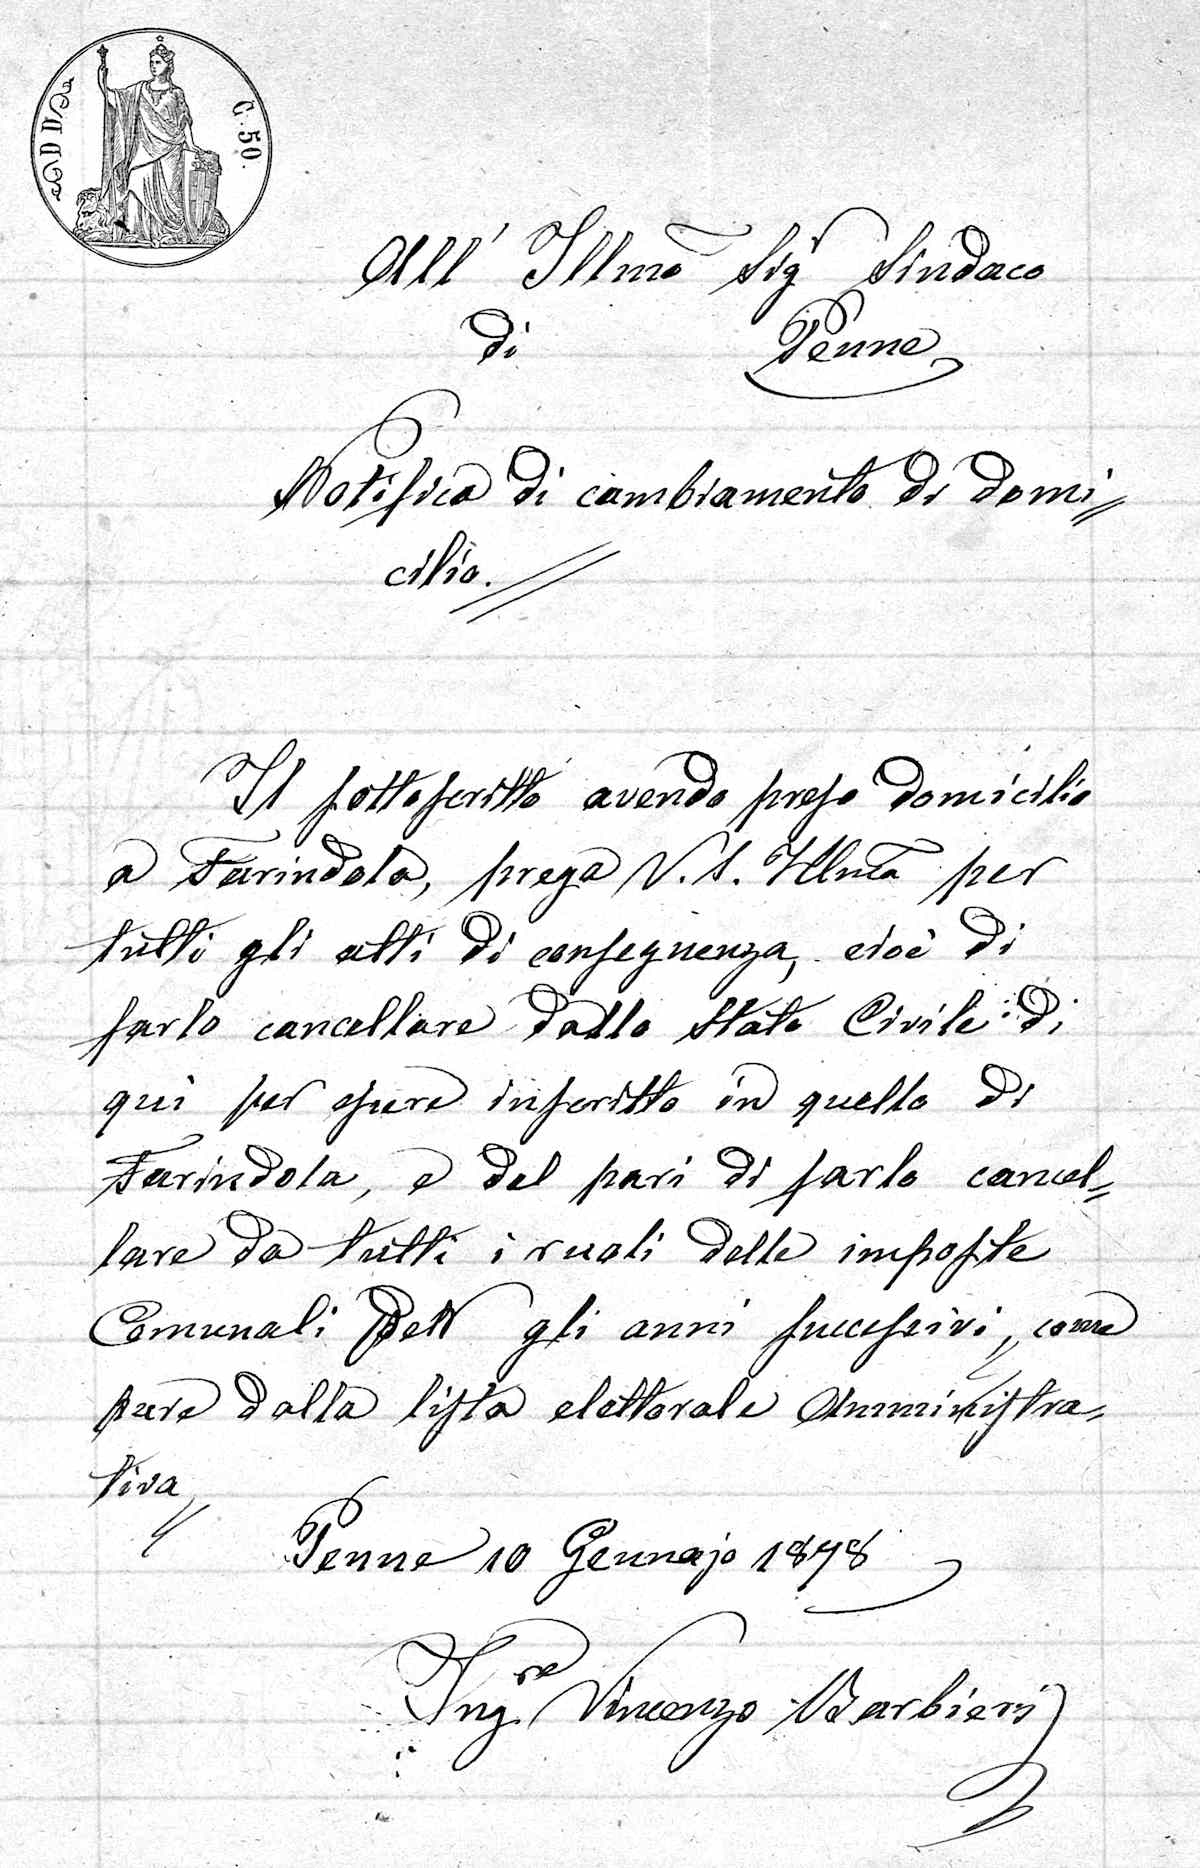 DD
C. 50.
All' Illmo Sigr Sindaco
di Penne
Notifica di cambiamento di domi=
cilio.
Il sottoscritto avendo preso domicilio
a Farindola, prega V. S. Illma per
tutti gli atti di conseguenza, cioè di
farlo cancellare dallo Stato Civile di
qui per essere inscritto in quello di
Farindola, e del pari di farlo cancel=
lare da tutti i ruoli delle imposte
Comunali gli anni successivi, come
pure dalla lista elettorale Amministra-
tiva,
Penne 10 Gennajo 1878
Ingre Vincenzo Barbieri